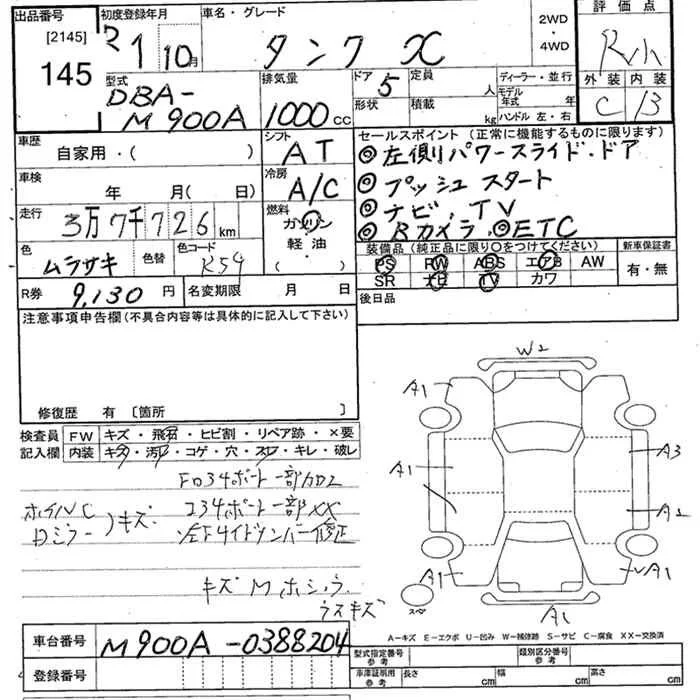 出品番号
[2145]
145
初度登録年月
R1 10月
車名・グレード
タンク X
2WD
・
4WD
評価点
R小
外装 内装
C B
型式
DBA-
M900A
排気量
1000cc
ドア 5
定員 人
形状
積載 kg
ディーラー・並行
モデル年式 年
ハンドル 左・右
車歴
自家用・( )
シフト
AT
車検
年 月( 日)
冷房
A/C
走行
3万7千726km
燃料
ガソリン
軽・油
( )
色
ムラサキ
色替
色コード
R59
R券 9,130円
名変期限 月 日
セールスポイント(正常に機能するものに限ります)
◎左側パワースライド・ドア
◎プッシュスタート
◎ナビ、TV
◎Bカメラ ◎ETC
装備品(純正品に限り○をつけてください)
新車保証書
PS PW ABS エアB AW
有・無
SR ナビ TV カワ
後日品
注意事項申告欄(不具合内容等は具体的に記入して下さい)
修復歴 有〔箇所 〕
検査員 FW キズ・飛石・ヒビ割・リペア跡・×要
記入欄 内装 キズ・汚レ・コゲ・穴・スレ・キレ・破レ
ホイルC
ドミラー
キズ
キズ
ウスキズ
W2
A1
A1
A1
A3
A2
A1
A1
スペ
A−キズ E−エクボ U−凹み W−補修跡 S−サビ C−腐食 XX−交換済
車台番号 M900A-0388204
登録番号
型式指定番号
参考
類別区分番号
参考
車庫証明用
参考
長さ cm
幅 cm
高さ cm